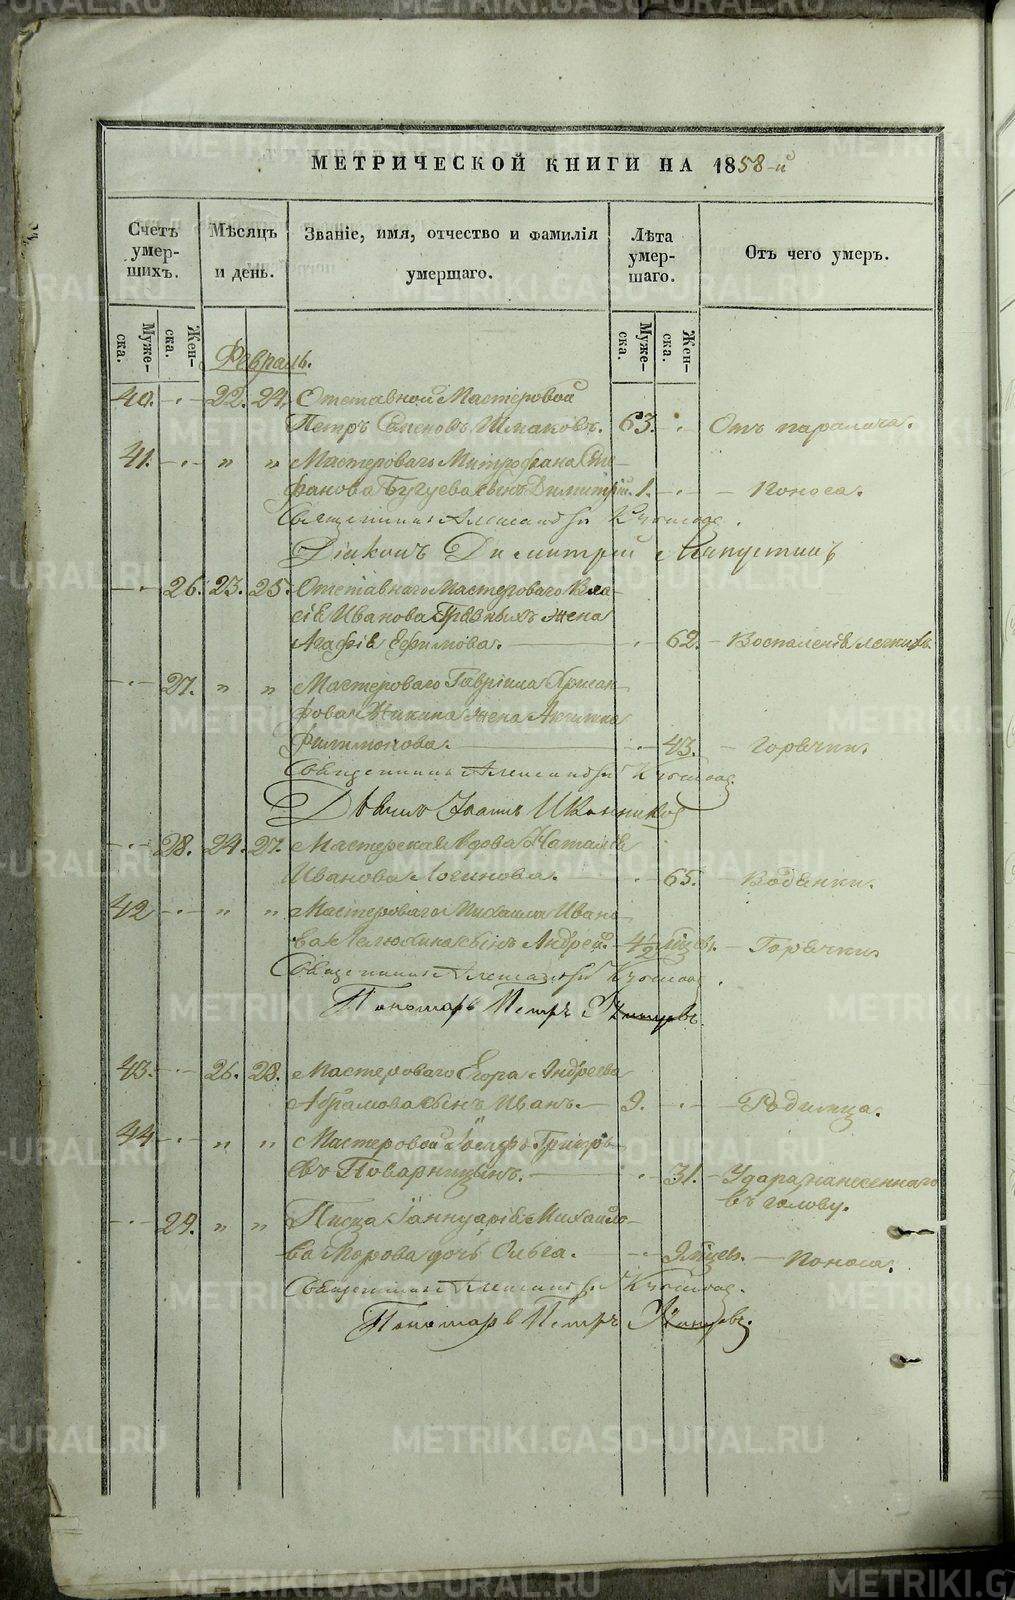 МЕТРИЧЕСКОЙ КНИГИ НА 1858-й
Счетъ умер- шихъ.
Мѣсяцъ и день.
Званіе, имя, отчество и фамилія умершаго.
Лѣта умер- шаго.
Отъ чего умеръ.
Муже- ска.
Жен- ска.
Муже- ска.
Жен- ска.
Февраль.
40. - " - 22. 24. Отставной Мастеровой
Петръ Семеновъ Шмаковъ. 63. " Отъ паралича.
41. - " - " " Мастероваго Митрофана Сте-
фанова Бугуева сынъ Димитрій. 1. - " - Поноса.
Священникъ Александръ
Діаконъ Димитрій
- " 26. 23. 25. Отставнаго Мастероваго Вла-
сія Иванова Грязныхъ жена
Агафія Ефимова. " 62. - Воспаленія легкихъ.
- " - 27. " " Мастероваго Гавріила Хрисан-
фова жена Акилина
Филимонова. " - 43. - Горячки.
Священникъ Александръ
Іоаннъ Иконников
- " - 28. 24. 27. Мастерская вдова Наталія
Иванова Логинова. " - 65. - Водянки.
42 - " - " " Мастероваго Михаила Ивано-
ва сынъ Андрей. 4½ мѣсяц. - Горячки
Священникъ Александръ
Пономарь Петръ
43. - " - 26. 28. Мастероваго Егора Андреева
Абрамова сынъ Иванъ. 9. - " - Родимца.
44 - " - " " Мастеровой Іосифъ Григорь-
евъ Поварницынъ. " - 31. - Удара, нанесеннаго
въ голову.
- " - 29. " " Писца Іаннуарія Михайло-
ва Морова дочь Ольга. - " 9 мѣсяц. - Поноса.
Священникъ Александръ
Пономарь Петръ
METRIKI.GASO-URAL.RU